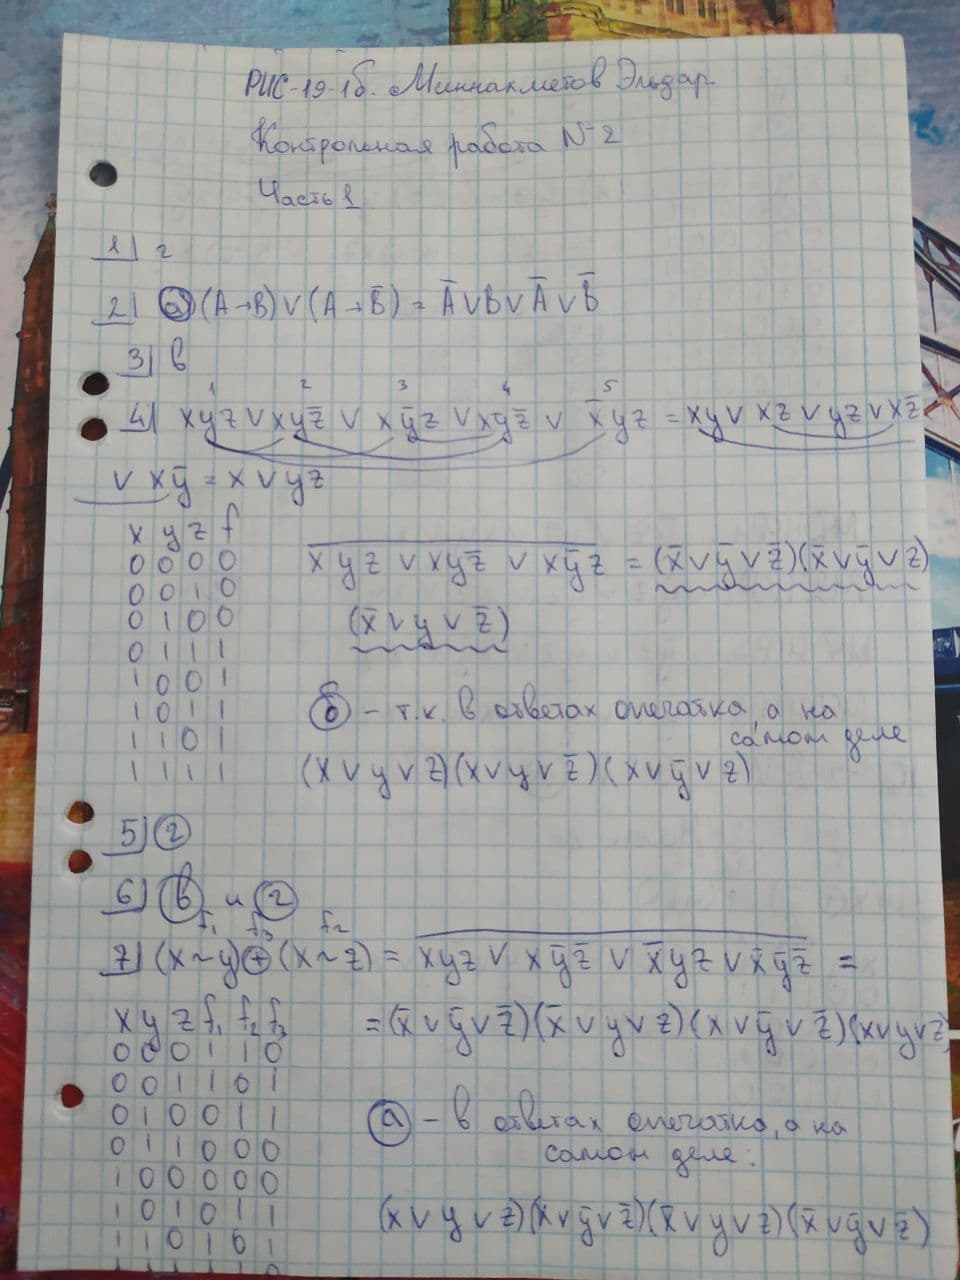 РИС-19-1б. Миннахметов Эльдар
Контрольная работа №2
Часть 1
1) г
2) а) (A→B) ∨ (A→B̄) = Ā∨B∨Ā∨B̄
3) в
1 2 3 4 5
4) xyz ∨ xyz̄ ∨ xȳz ∨ xȳz̄ ∨ x̄yz = xy ∨ xz ∨ yz ∨ xz̄
∨ xȳ = x ∨ yz
x y z f
0 0 0 0
0 0 1 0
0 1 0 0
0 1 1 1
1 0 0 1
1 0 1 1
1 1 0 1
1 1 1 1
xyz ∨ xyz̄ ∨ xȳz = (x̄∨ȳ∨z̄)(x̄∨ȳ∨z)
(x̄∨y∨z̄)
б – т.к. в ответах опечатка, а на
самом деле
(x∨y∨z)(x∨y∨z̄)(x∨ȳ∨z)
5) г
6) в и г
f₁ f₃ f₂
7) (x~y)⊕(x~z) = xyz ∨ xȳz̄ ∨ x̄yz ∨ x̄ȳz̄ =
= (x̄∨ȳ∨z̄)(x̄∨y∨z)(x∨ȳ∨z̄)(x∨y∨z)
x y z f₁ f₂ f₃
0 0 0 1 1 0
0 0 1 1 0 1
0 1 0 0 1 1
0 1 1 0 0 0
1 0 0 0 0 0
1 0 1 0 1 1
1 1 0 1 0 1
1 1 1 1 1 0
а – в ответах опечатка, а на
самом деле:
(x∨y∨z)(x∨ȳ∨z̄)(x̄∨y∨z)(x̄∨ȳ∨z̄)